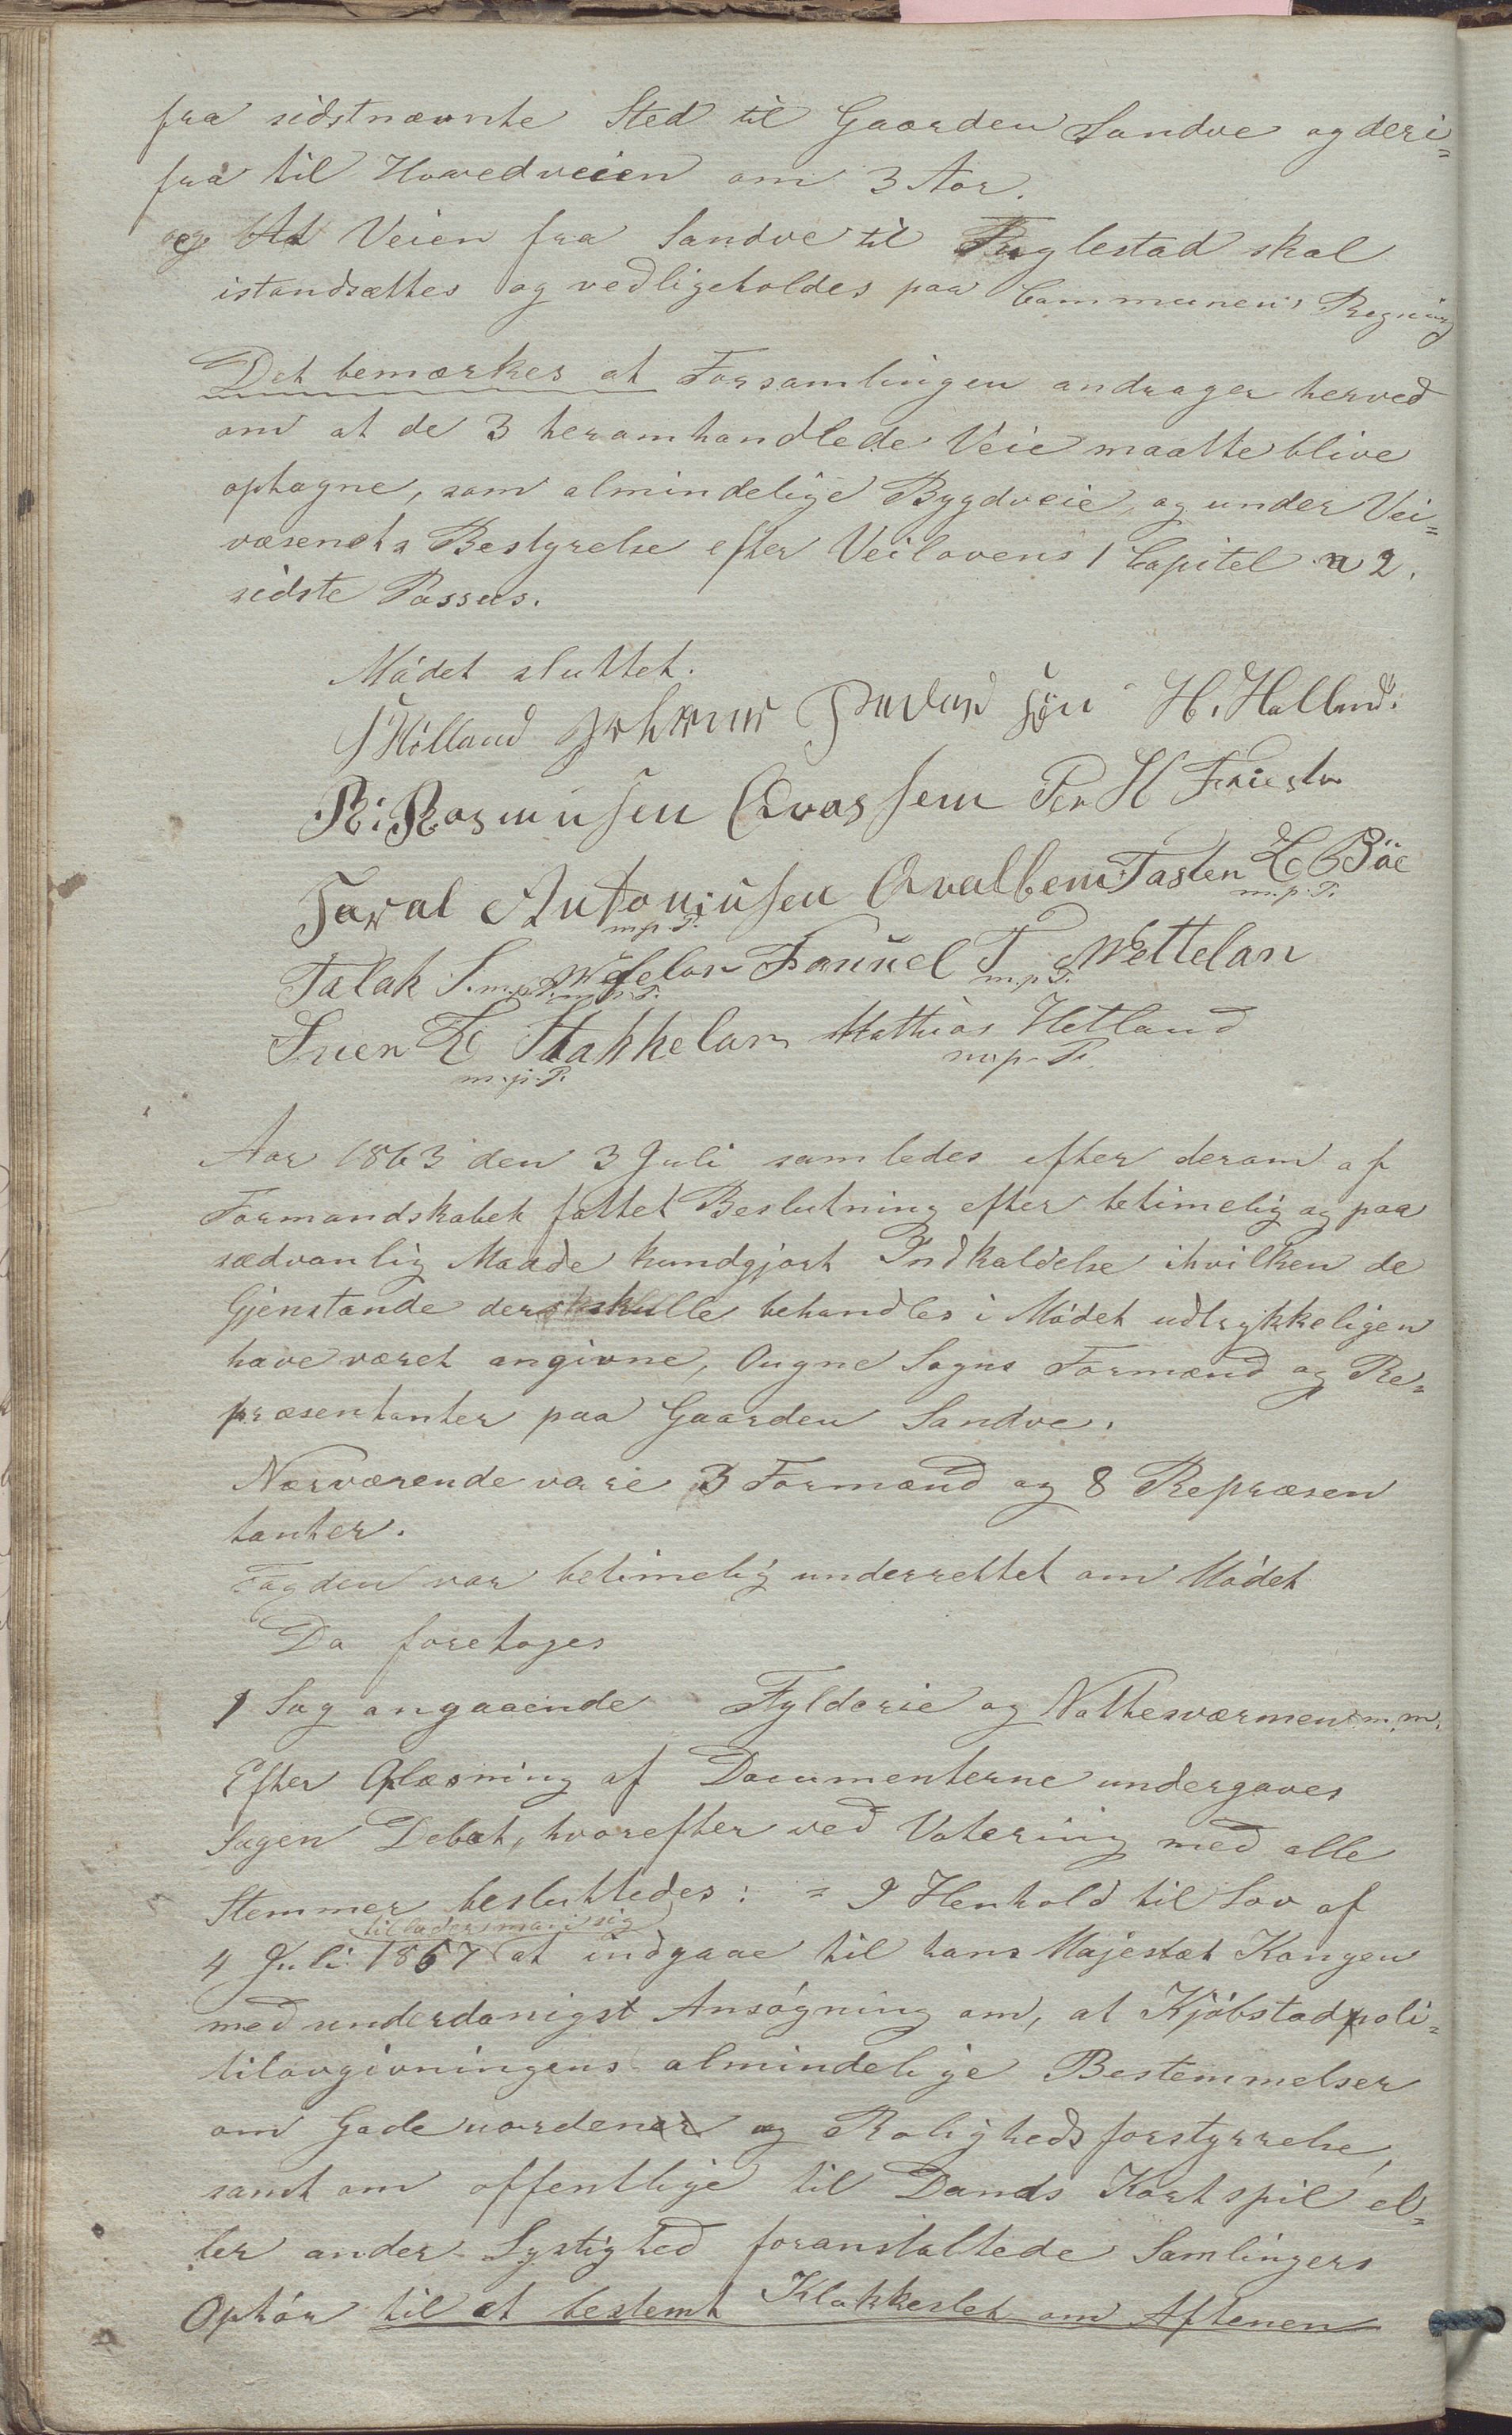 fra sidstnævnte Sted til Gaarden Sandve og deri=
fra til Hovedveien om 3 Aar.
og At Veien fra Sandve til Fuglestad skal
istandsættes og vedligeholdes paa Communens Regning
Det bemærkes at Forsamlingen andrager herved
om at de 3 heromhandlede Veie maatte blive
optagne, som almindelige Bygdveie, og under Vei=
væsenets Bestyrelse efter Veilovens 1 Capitel 2.
sidste Passus.
Mödet sluttet.
Hölland H. Halland.
R. Rasmusen Qvassem Per H
Antoniusen Qvalbem Tasten E Böe
m.p.P. m.p.P.
Talak S. Samuel T Wettelan
m.p.P. m.p.P. m.p.P.
Suen E Stakkelan Mathias Hetland
m.p.P. m.p.P.
Aar 1863 den 3 Juli samledes efter derom af
Formandskabet fattet Beslutning efter betimelig og paa
sædvanlig Maade kundgjort Indkaldelse ihvilken de
Gjenstande der skulle behandles i Mödet udtrykkeligen
have været angivne, Ougne Sogns Formænd og Re=
præsentanter paa Gaarden Sandve.
Nærværende vare 3 Formænd og 8 Repræsen
tanter.
Fogden var betimelig underrettet om Mödet
Da foretoges
1 Sag angaaende Fylderie og Nattesværmen m.m.
Efter Oplæsning af Documenterne undergaves
Sagen Debat, hvorefter ved Votering med alle
Stemmer besluttedes: = I Henhold til Lov af
tillader man sig
4 Juli 1857 at indgaae til hans Majestæt Kongen
med underdanigst Ansögning om, at Kjöbstadpoli=
tilovgivningens almindelige Bestemmelser
om Gadeuorden og Rolighedsforstyrrelse,
samt om offentlige til Dands Kortspil el=
ler anden Lystighed foranstaltede Samlingers
Ophör til et bestemt Klokkeslet om Aftenen